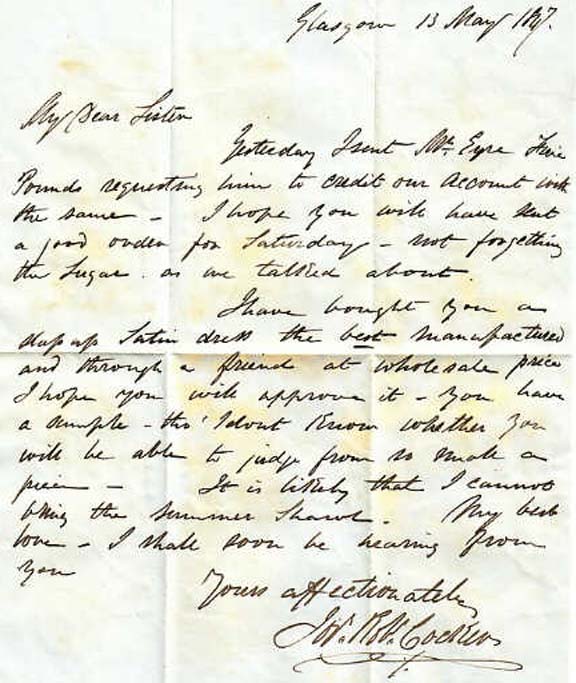 Glasgow 13 May 1847.
My Dear Sister
Yesterday I sent Mr. Eyre Five
Pounds requesting him to credit our Account with
the same – I hope you will have sent
a good order for Saturday – not forgetting
the Sugar as we talked about.
I have bought you a
Satin dress the best manufactured
and through a friend at wholesale price
I hope you will approve it – you have
a sample – tho' I dont know whether you
will be able to judge from so small a
piece – It is likely that I cannot
bring the summer Shawl. My best
love – I shall soon be hearing from
you
Yours affectionately